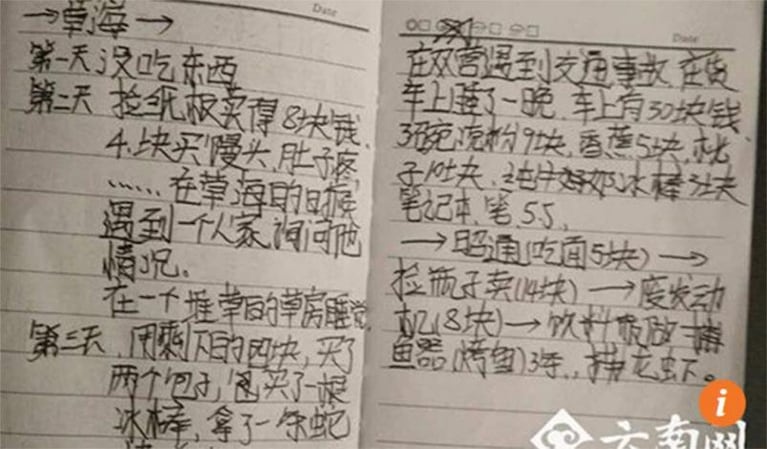 →草海→ Date
第一天 没吃东西
第二天 捡纸板卖得8块钱.
4块买馒头,肚子疼
……在草海的时候
遇到一个人家询问他
情况.
在一个堆草的草房睡觉.
第三天,用剩下的四块,买了
两个包子,包买了一根
冰棒,拿了一条蛇
Date
在双营遇到交通事故,在货
车上睡了一晚,车上有30块钱,
3碗凉粉9块,香蕉5块,桃
子10块,纯牛奶冰棒3块
笔记本,笔,5.5,
→昭通(吃面5块)→
捡瓶子卖(14块)→废发动
机(8块)→饮料瓶做捕
鱼器(烤鱼)3年,捕龙虾。
i
云南网